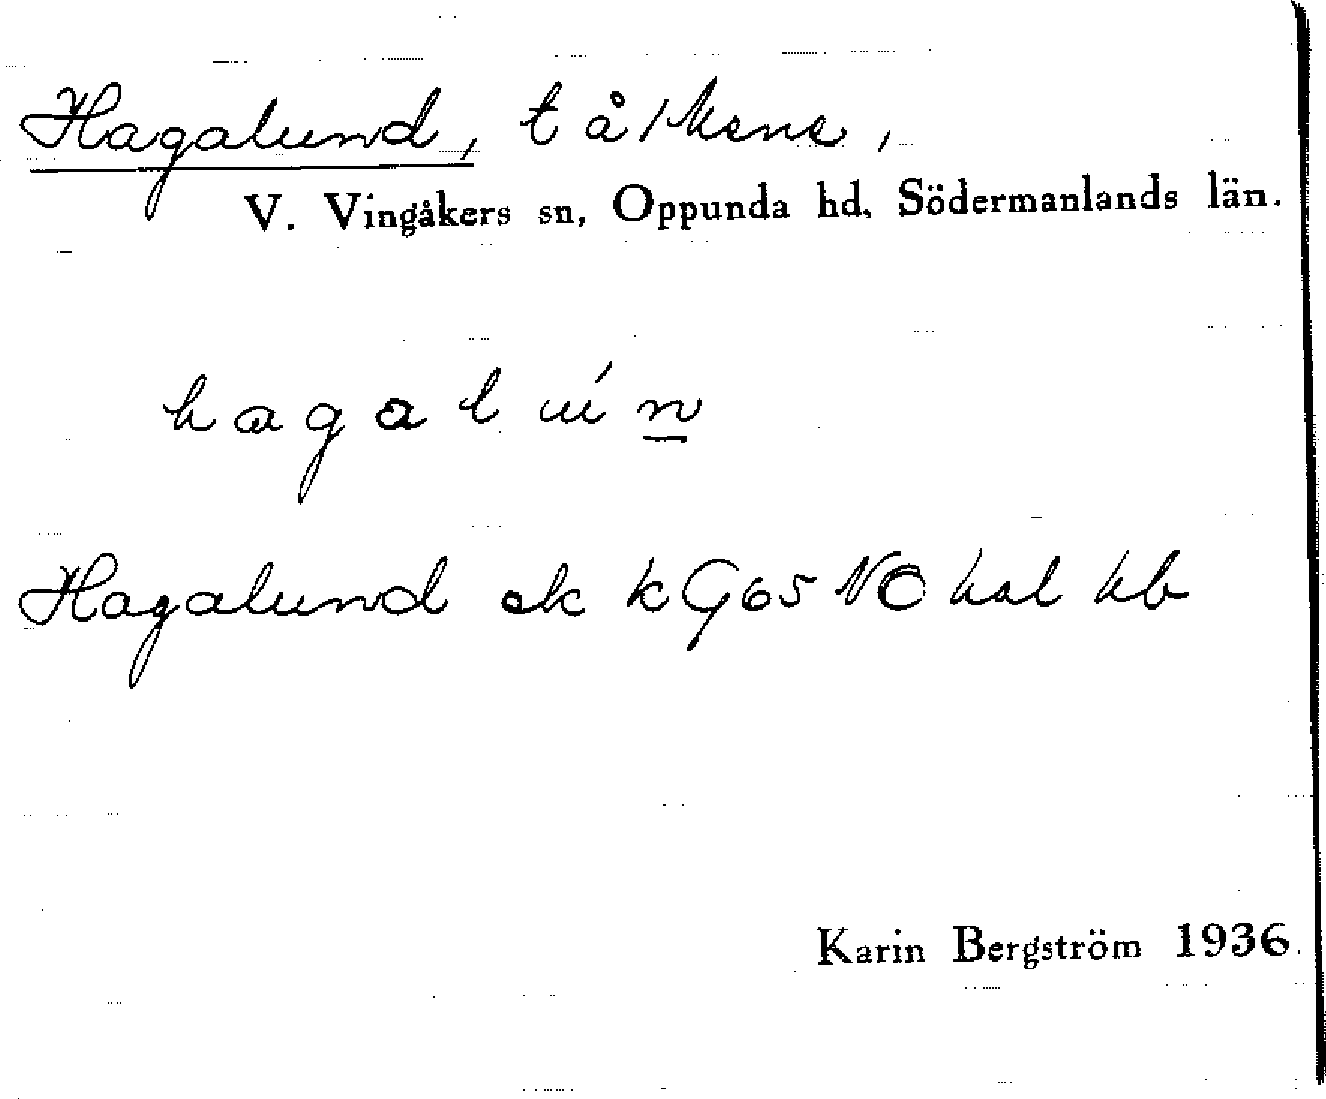 Hagalund, t å/Kene,
V. Vingåkers sn, Oppunda hd, Södermanlands län.
hagalún
Hagalund ek kG65 NO hal kb
Karin Bergström 1936.